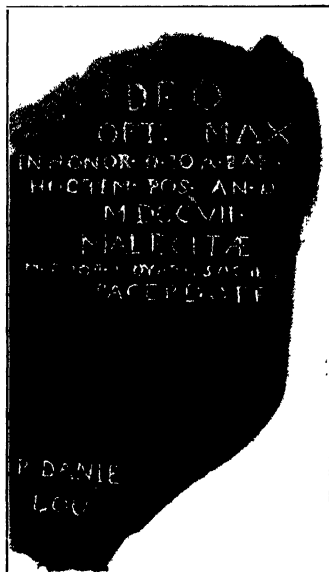 DEO
OPT. MAX
IN HONOR. D. IOA. BAP.
HOC TEM. POS. AN. D
M DCC VII.
MALECITÆ
SACERDOTE
P. DANIE
LOU